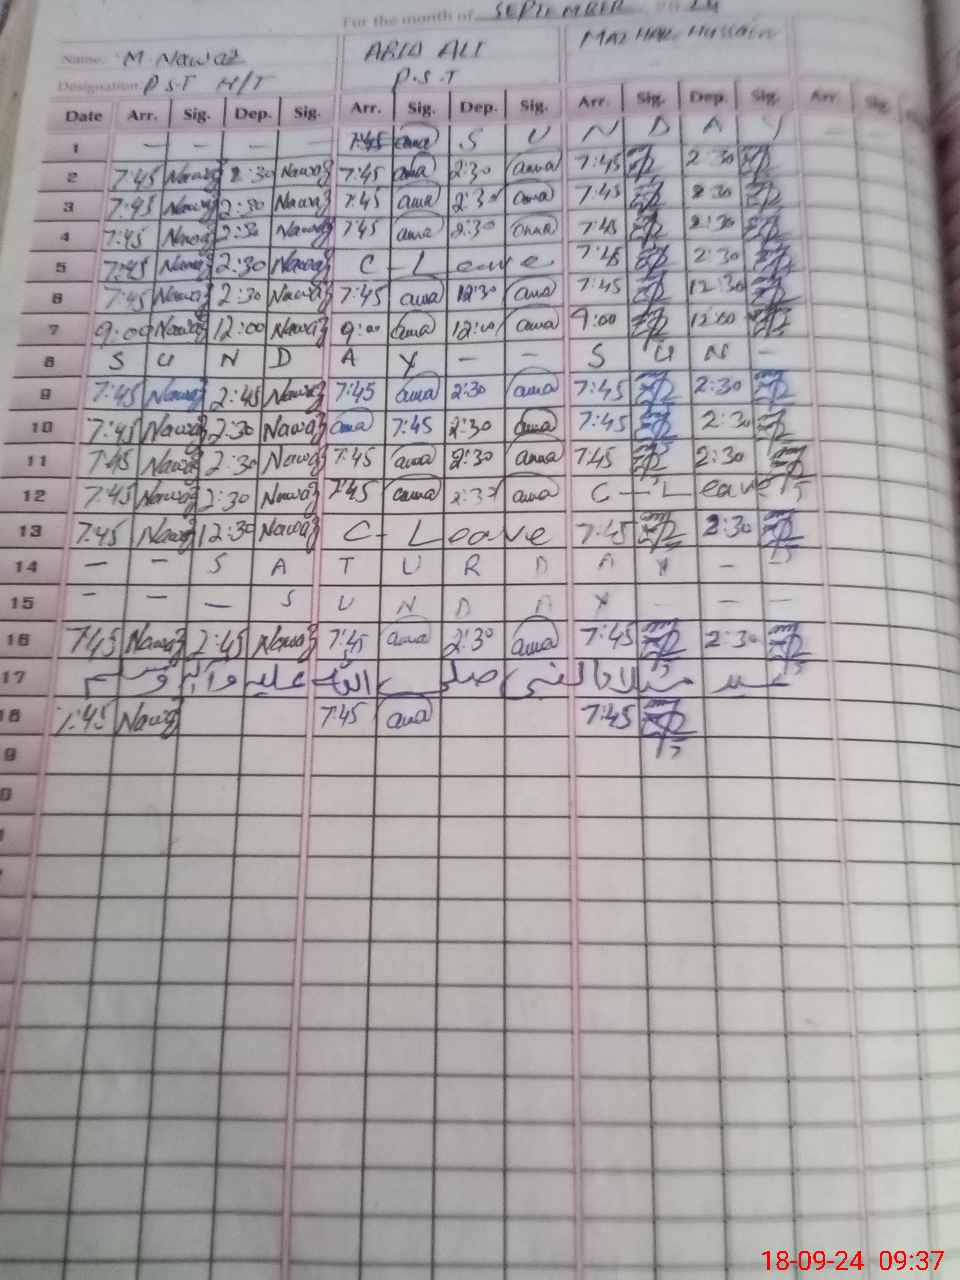 For the month of SEPTEMBER 2024
Name: M Nawaz ABID ALI MAZHAR Hussain
Designation P.S.T H/T P.S.T
Date Arr. Sig. Dep. Sig. Arr. Sig. Dep. Sig. Arr. Sig. Dep. Sig. Arr Sig.
1 – – – – 7:45 ama S U N D A Y
2 7:45 Nawaz 2:30 Nawaz 7:45 ama 2:30 ama 7:45 2:30
3 7:45 Nawaz 2:30 Nawaz 7:45 ama 2:30 ama 7:45 2:30
4 7:45 Nawaz 2:30 Nawaz 7:45 ama 2:30 ama 7:45 2:30
5 7:45 Nawaz 2:30 Nawaz C - Leave 7:45 2:30
6 7:45 Nawaz 2:30 Nawaz 7:45 ama 12:30 ama 7:45 12:30
7 9:00 Nawaz 12:00 Nawaz 9:00 ama 12:00 ama 9:00 12:00
8 S U N D A Y – – S U N –
9 7:45 Nawaz 2:45 Nawaz 7:45 ama 2:30 ama 7:45 2:30
10 7:45 Nawaz 2:30 Nawaz ama 7:45 2:30 ama 7:45 2:30
11 7:45 Nawaz 2:30 Nawaz 7:45 ama 2:30 ama 7:45 2:30
12 7:45 Nawaz 2:30 Nawaz 7:45 ama 2:30 ama C - Leave
13 7:45 Nawaz 12:30 Nawaz C - Leave 7:45 2:30
14 – – S A T U R D A Y –
15 – – – S U N D A Y – – –
16 7:45 Nawaz 2:45 Nawaz 7:45 ama 2:30 ama 7:45 2:30
17 عید میلادالنبی صلی اللہ علیہ وآلہ وسلم
18 7:45 Nawaz 7:45 ama 7:45
9
0
18-09-24 09:37